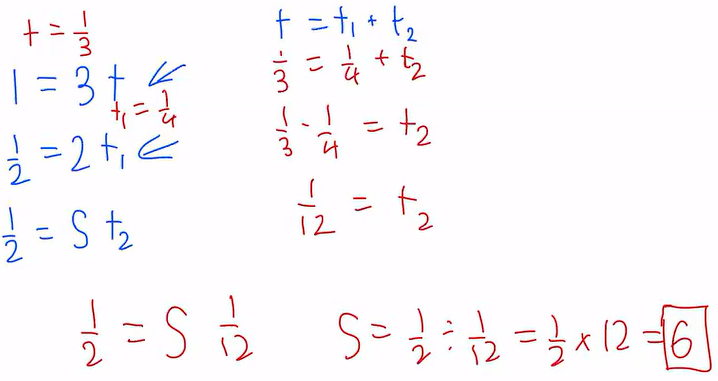 t = 1/3
1 = 3t
t₁ = 1/4
1/2 = 2t₁
1/2 = S t₂
t = t₁ + t₂
1/3 = 1/4 + t₂
1/3 - 1/4 = t₂
1/12 = t₂
1/2 = S 1/12
S = 1/2 ÷ 1/12 = 1/2 × 12 = 6